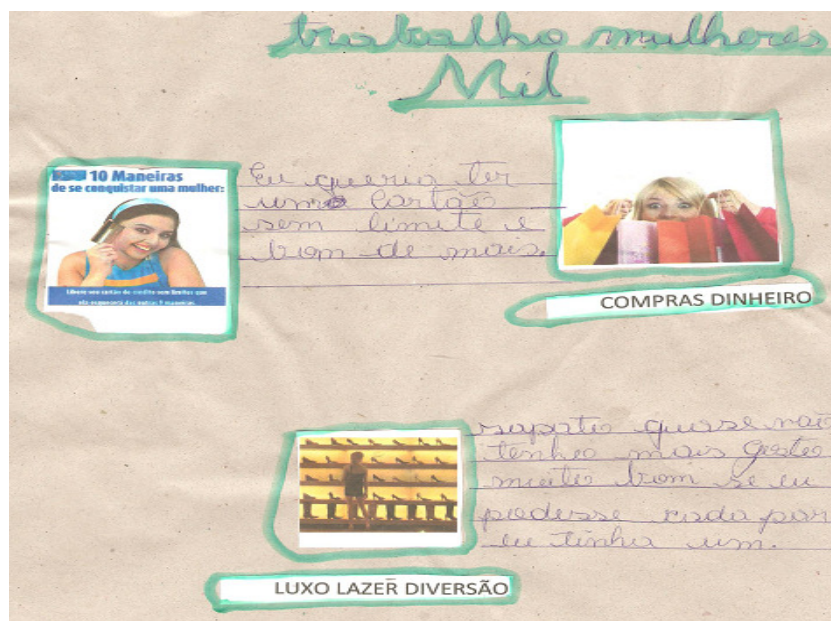 trabalho mulheres
Mil
10 Maneiras
de se conquistar uma mulher:
Libere seu cartão de crédito sem limites que
ela esquecerá das outras 9 maneiras.
Eu queria ter
um cartão
sem limite é
bom de mais.
COMPRAS DINHEIRO
sapato quase não
tenho mais gosto
muito bom se eu
podesse cada par
eu tinha um.
LUXO LAZER DIVERSÃO